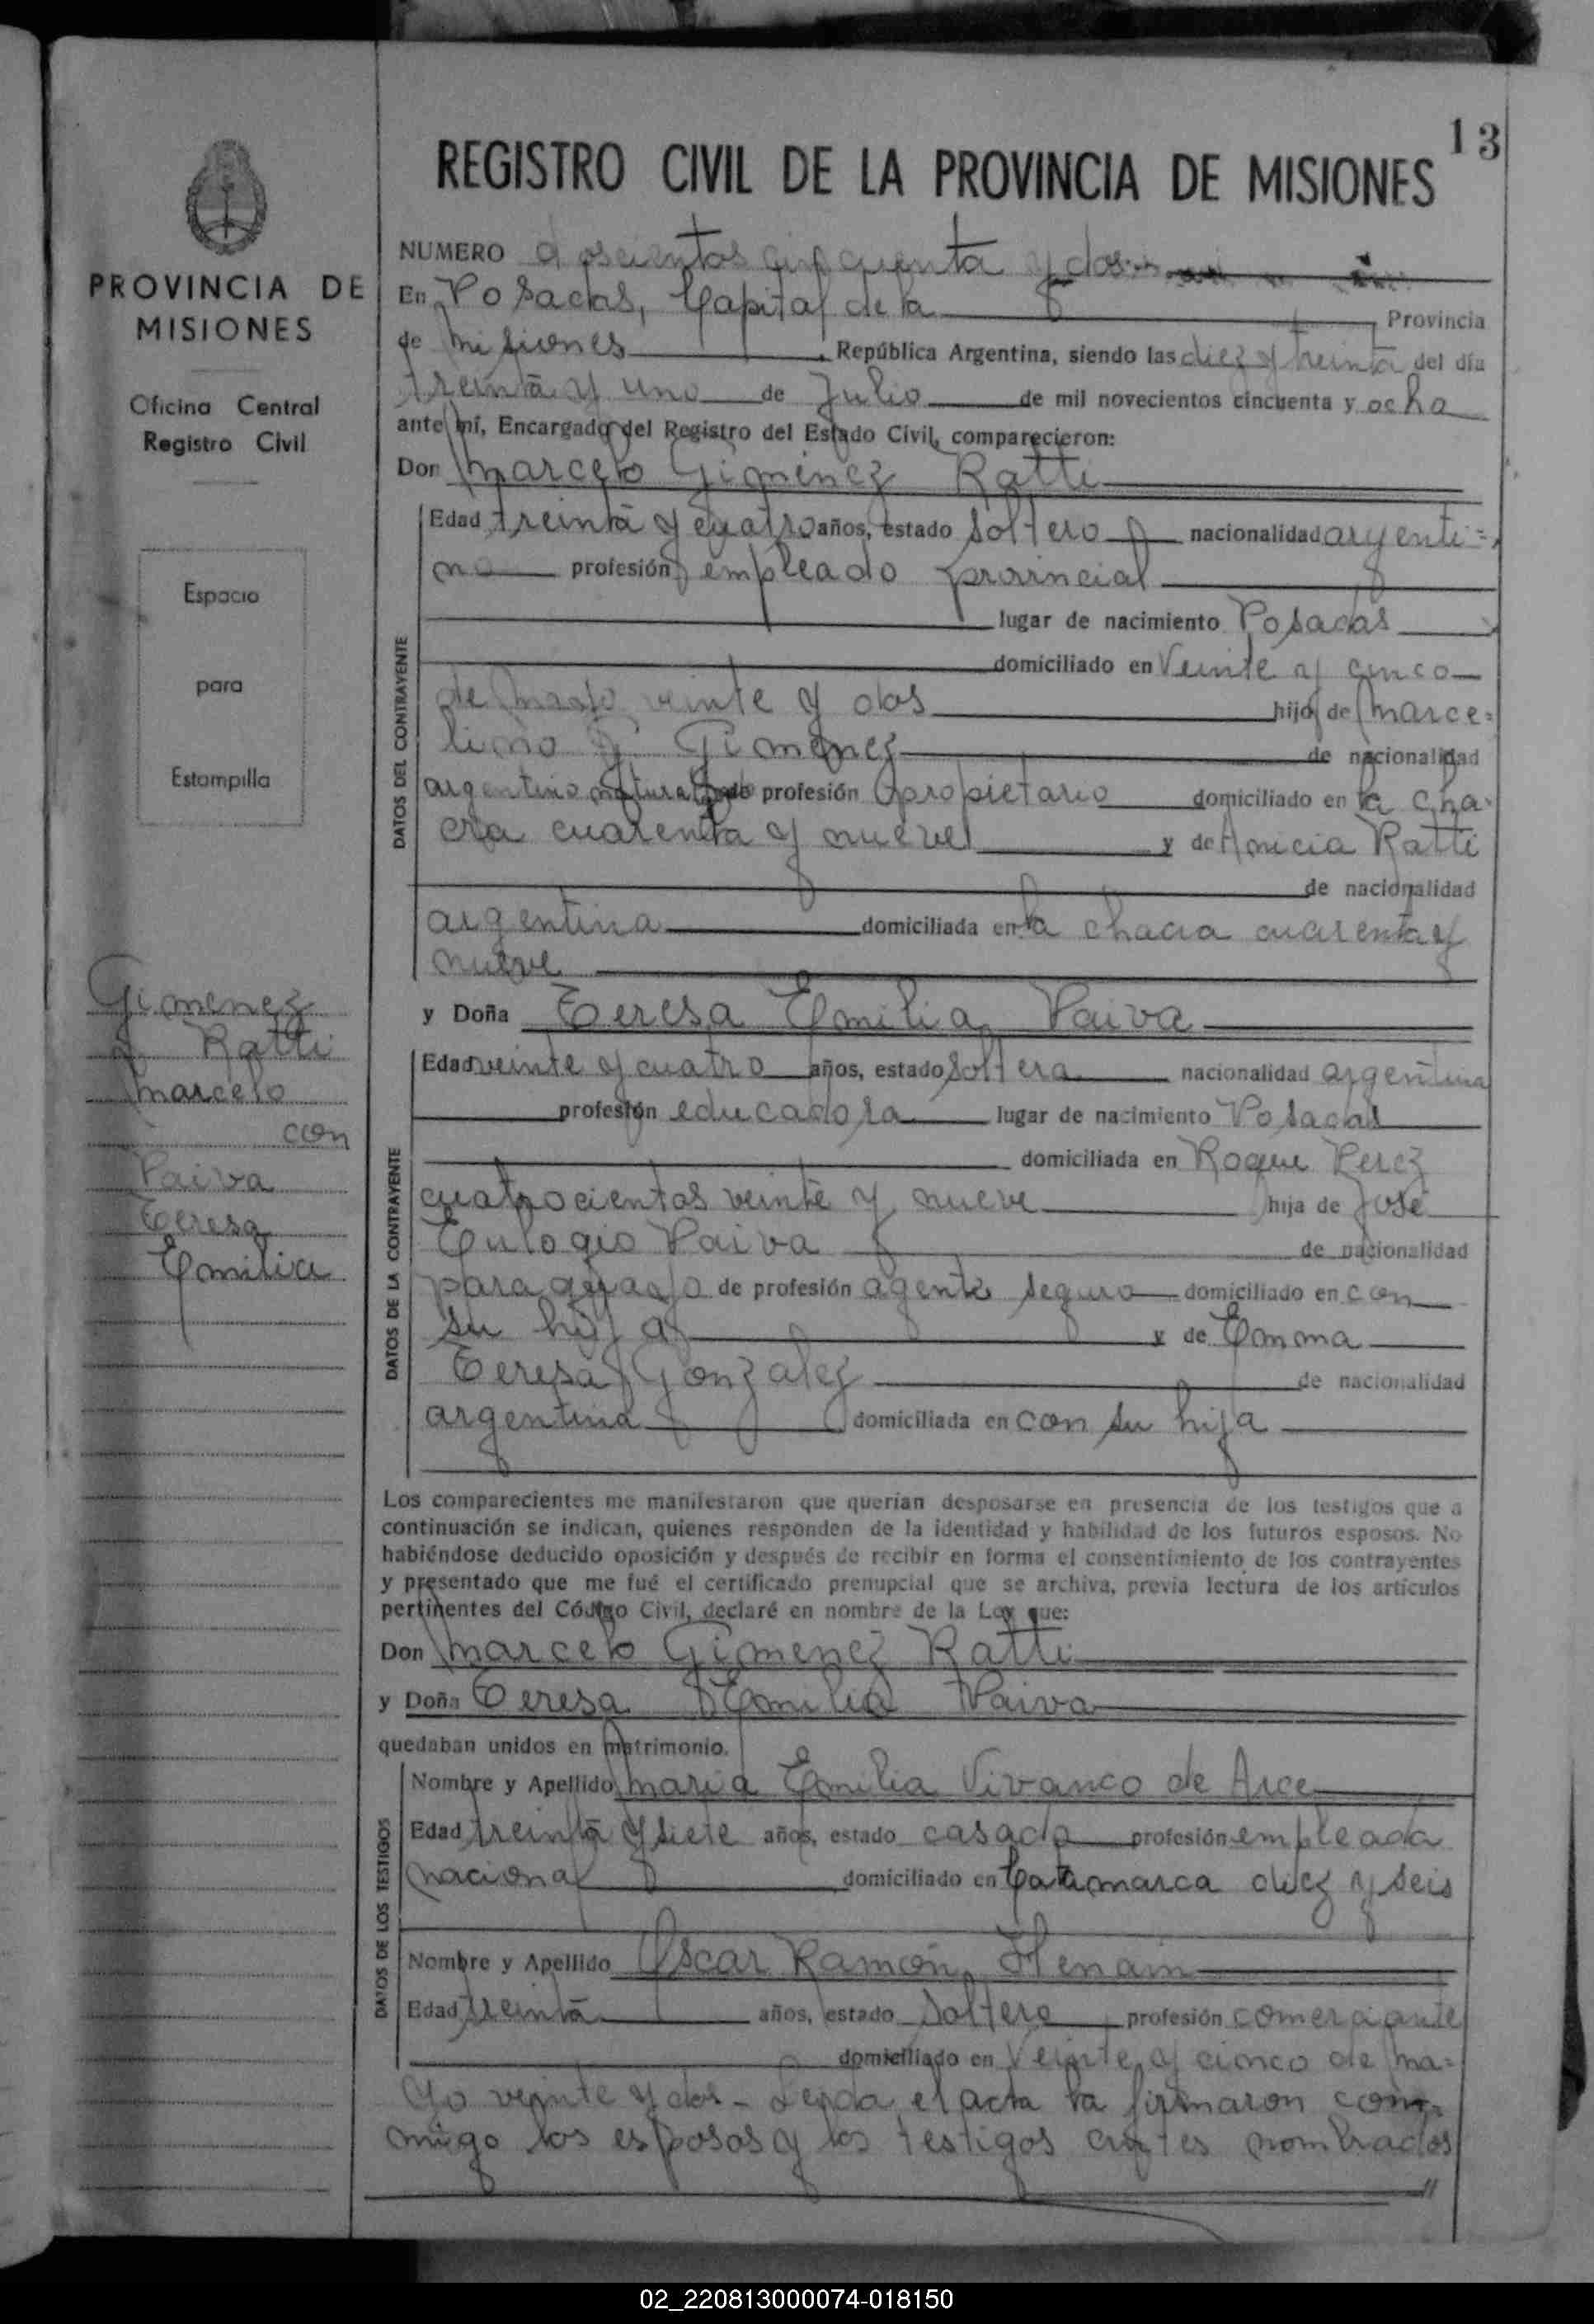 13
REGISTRO CIVIL DE LA PROVINCIA DE MISIONES
PROVINCIA DE
MISIONES
Oficina Central
Registro Civil
Espacio
para
Estampilla
Gimenez
Ratti
Marcelo
con
Paiva
Teresa
Emilia
NUMERO doscientos cincuenta y dos
En Posadas, Capital de la Provincia
de Misiones, República Argentina, siendo las diez y treinta del día
treinta y uno de Julio de mil novecientos cincuenta y ocho
ante mí, Encargado del Registro del Estado Civil, comparecieron:
Don Marcelo Gimenez Ratti
DATOS DEL CONTRAYENTE
Edad treinta y cuatro años, estado soltero nacionalidad argenti=
no profesión empleado provincial
lugar de nacimiento Posadas
domiciliado en Veinte y cinco
de Mayo veinte y dos hijo de Marce=
lino Gimenez de nacionalidad
argentino de profesión propietario domiciliado en la cha=
cra cuarenta y nueve y de Anicia Ratti
de nacionalidad
argentina domiciliada en la chacra cuarenta y
nueve
y Doña Teresa Emilia Paiva
DATOS DE LA CONTRAYENTE
Edad veinte y cuatro años, estado soltera nacionalidad argentina
profesión educadora lugar de nacimiento Posadas
domiciliada en Roque Perez
cuatrocientos veinte y nueve hija de José
Eulogio Paiva de nacionalidad
paraguayo de profesión agente seguro domiciliado en con
su hija y de Emma
Teresa Gonzalez de nacionalidad
argentina domiciliada en con su hija
Los comparecientes me manifestaron que querían desposarse en presencia de los testigos que a
continuación se indican, quienes responden de la identidad y habilidad de los futuros esposos. No
habiéndose deducido oposición y después de recibir en forma el consentimiento de los contrayentes
y presentado que me fué el certificado prenupcial que se archiva, previa lectura de los artículos
pertinentes del Código Civil, declaré en nombre de la Ley que:
Don Marcelo Gimenez Ratti
y Doña Teresa Emilia Paiva
quedaban unidos en matrimonio.
DATOS DE LOS TESTIGOS
Nombre y Apellido Maria Emilia Vivanco de Arce
Edad treinta y siete años, estado casada profesión empleada
nacional domiciliado en Catamarca diez y seis
Nombre y Apellido Oscar Ramón Henain
Edad treinta años, estado soltero profesión comerciante
domiciliado en Veinte y cinco de Ma=
yo veinte y dos - Leida el acta la firmaron con=
migo los esposos y los testigos antes nombrados
02_220813000074-018150